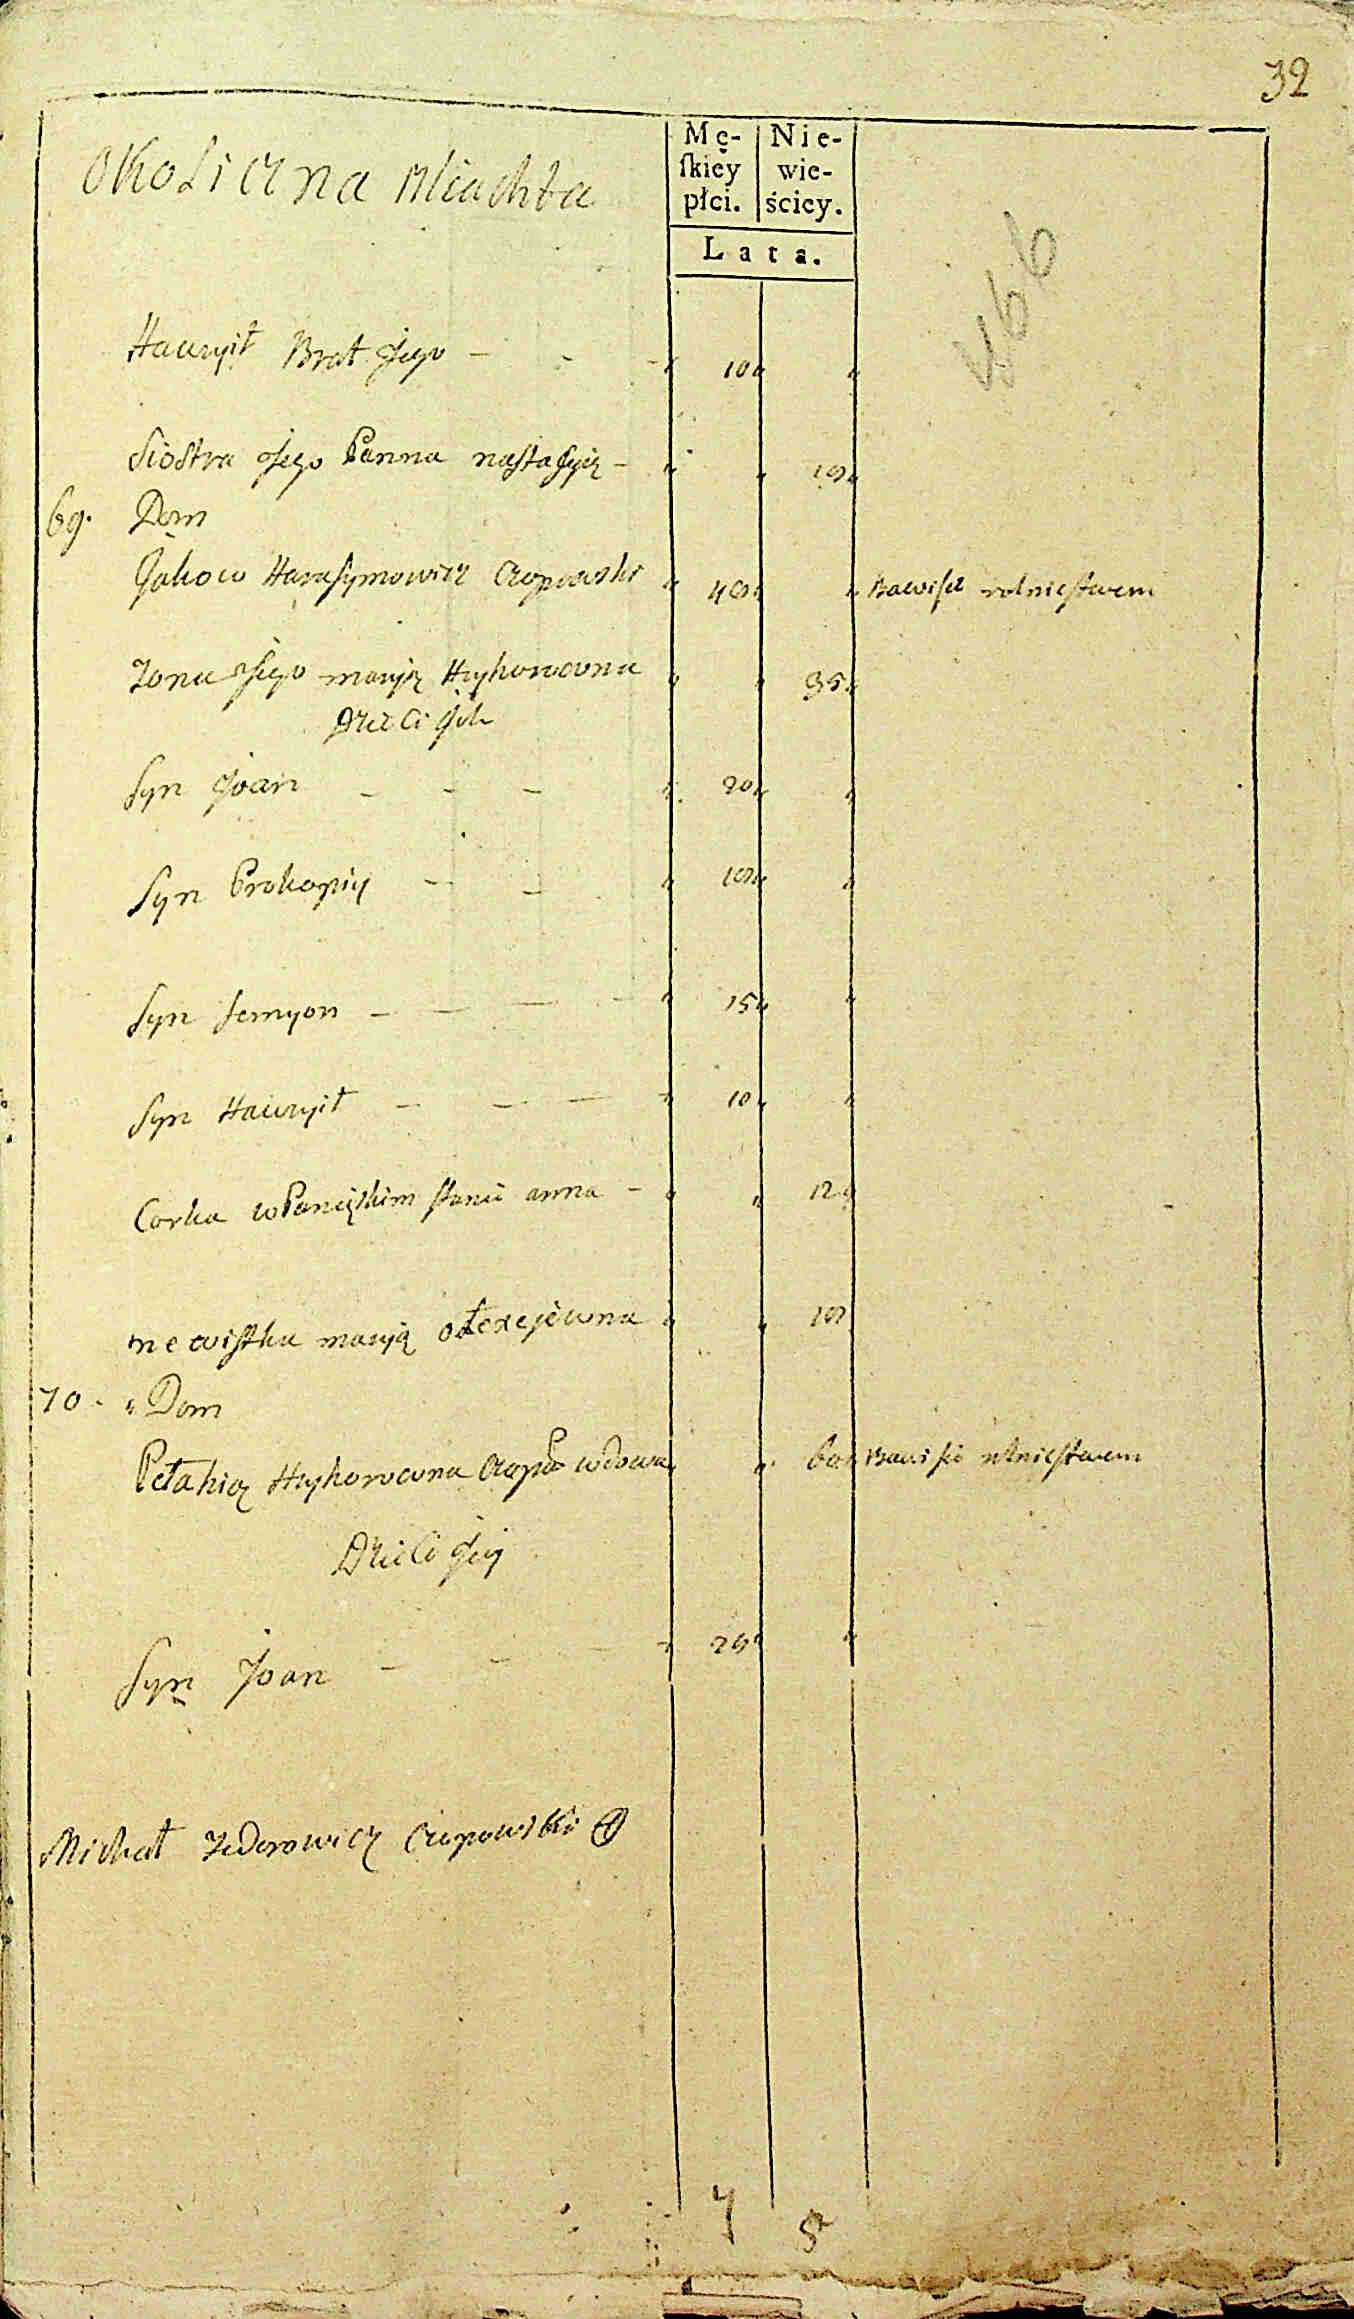 32
okoliczna szlachta
Mę- Nie-
ſkiey wie-
płci. ścicy.
Lata.
466
Hauryił Brat Jego - - - 10
Siostra Jego Panna nastasyią - 19
69. Dom
Jakow Harasymowicz Czopowski 40 Bawi sie rolnictwem
Zona Jego maryją Hryhorowna 35
Dzieci Jch
Syn Joan - - - 20
Syn Prokopiy - - 19
Syn Semyon - - - - 15
Syn Hauryił - - - - 10
Corka w Panięskim stanie anna - 12
newistka maryją ołexejewna 19
70. Dom
Pełahią Hryhorowna Czopo wdowa 60 Bawi sie rolnictwem
Dzieci Jey
Syn Joan - - - - 29
Michał Fedorowicz Czopowski
7 5